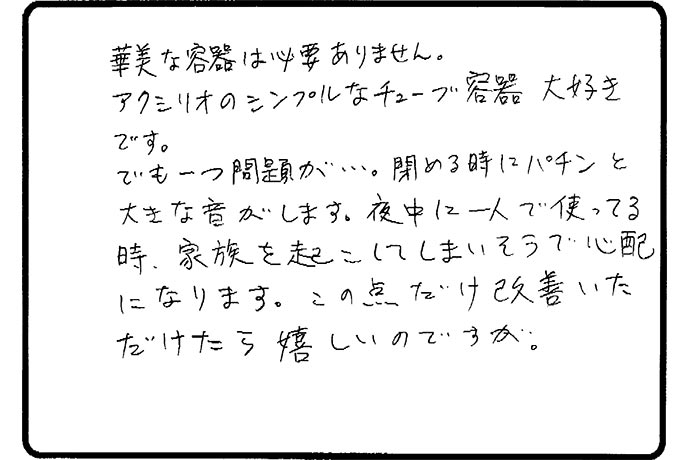 華美な容器は必要ありません。
アクシリオのシンプルなチューブ容器 大好き
です。
でも一つ問題が…。閉める時にパチンと
大きな音がします。夜中に一人で使ってる
時、家族を起こしてしまいそうで心配
になります。この点だけ改善いた
だけたら嬉しいのですが。